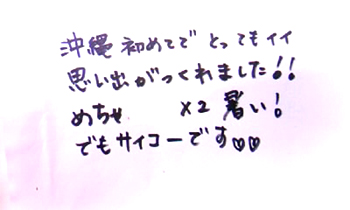 沖縄初めてで とってもイイ
思い出がつくれました!!
めちゃ ×2 暑い!
でもサイコーです♡♡